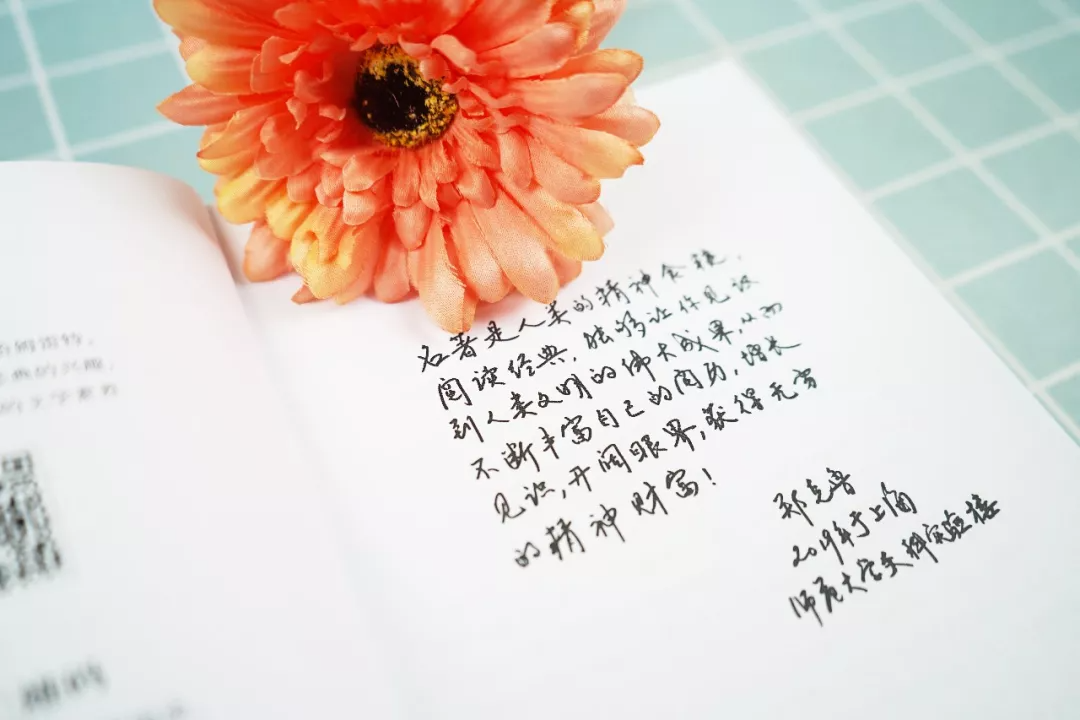 名著是人类的精神食粮,
阅读经典,能够让你见识
到人类文明的伟大成果,从而
不断丰富自己的阅历,增长
见识,开阔眼界,获得无穷
的精神财富!
郑克鲁
2019年于上海
师范大学文科实验楼